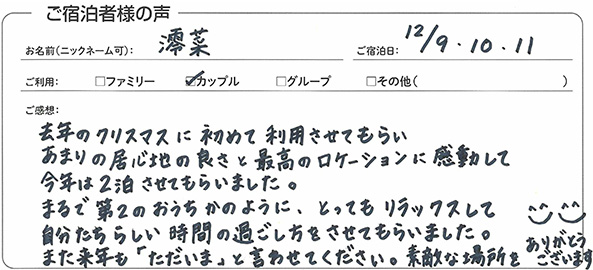 ご宿泊者様の声
お名前(ニックネーム可): 澪菜
ご宿泊日: 12/9・10・11
ご利用: □ファミリー ☑カップル □グループ □その他( )
ご感想:
去年のクリスマスに初めて利用させてもらい
あまりの居心地の良さと最高のロケーションに感動して
今年は2泊させてもらいました。
まるで第2のおうちかのように、とってもリラックスして
自分たちらしい時間の過ごし方をさせてもらいました。
また来年も「ただいま」と言わせてください。素敵な場所を
ありがとう
ございます